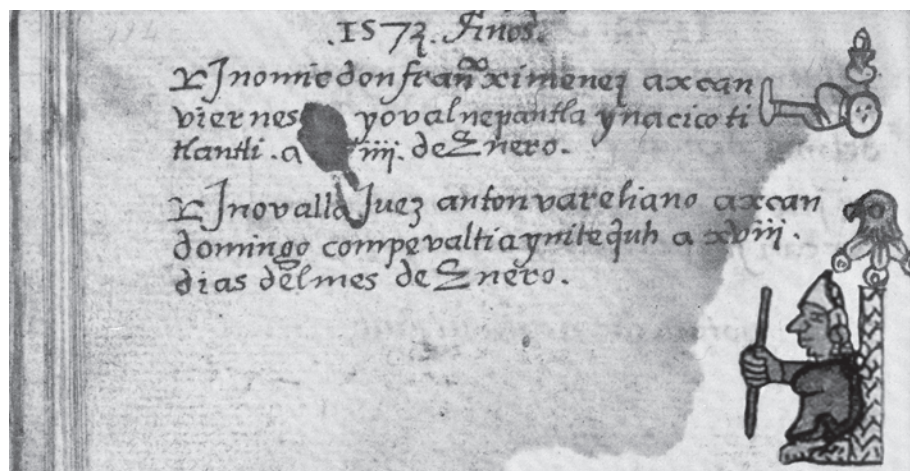 .1573. Años.
Ɏ Jnomic don franco ximenez axcan
viernes yovalnepantla ynacico ti
tlantli . a iiii. de Enero.
Ɏ Jnovalla Juez anton vareliano axcan
domingo compevaltia ynitequh a xviii.
dias del mes de Enero.